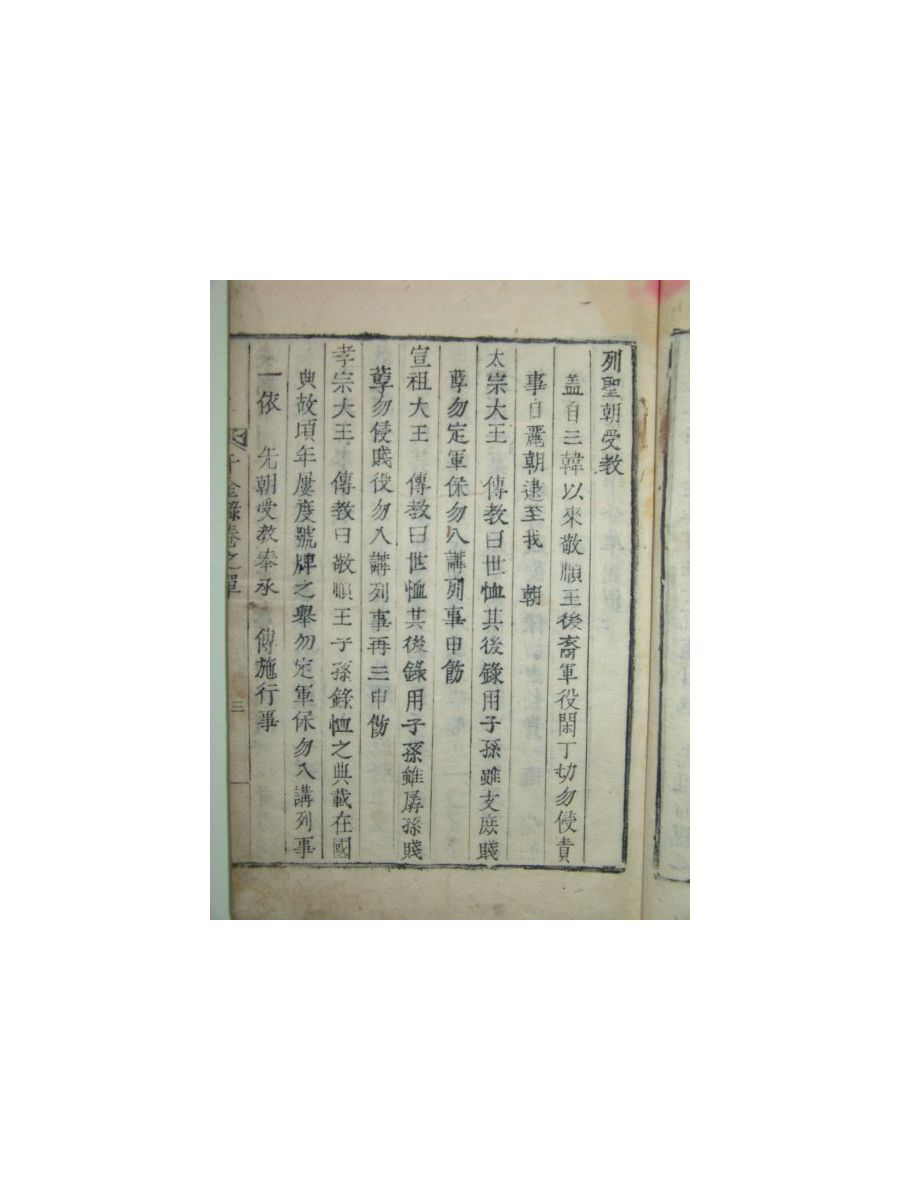 列聖朝受教
盖自三韓以來敬順王後裔軍役閑丁切勿侵責
事自麗朝逮至我 朝
太宗大王 傳教曰世恤其後錄用子孫雖支庶賤
孽勿定軍保勿入講列事申飭
宣祖大王 傳教曰世恤其後錄用子孫雖孱孫賤
孽勿侵賤役勿入講列事再三申飭
孝宗大王 傳教曰敬順王子孫錄恤之典載在國
典故頃年屢度號牌之舉勿定軍保勿入講列事
一依 先朝受教奉承 傳施行事
千金錄卷之單 三